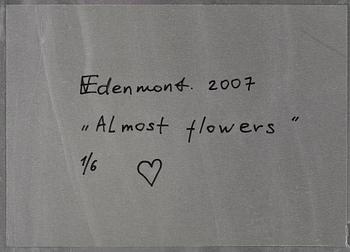 Edenmont. 2007
„ALmost flowers"
1/6 ♡